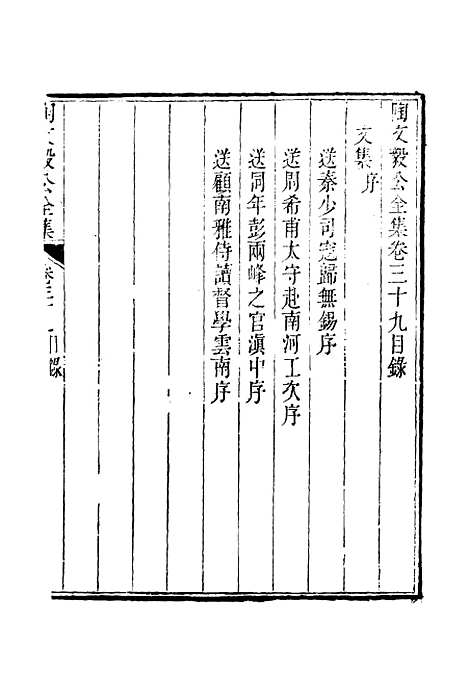 陶文毅公全集卷三十九目錄
文集序
送秦少司寇歸無錫序
送周希甫太守赴南河工次序
送同年彭兩峰之官滇中序
送顧南雅侍讀督學雲南序
陶文毅公全集
卷三十九目錄